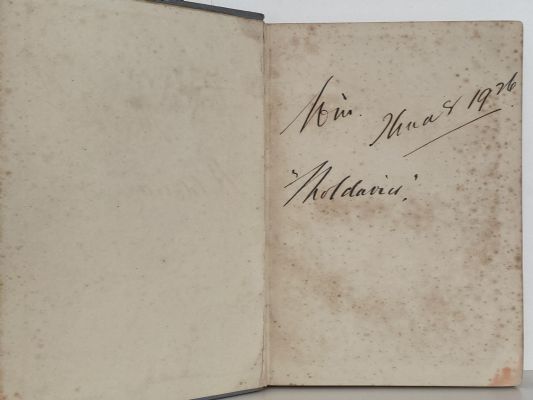 Xmas 1926.
"Moldavia".